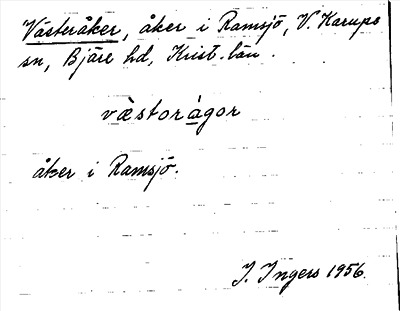 Västeråker, åker i Ramsjö, V. Karups
sn, Bjäre hd, Krist. län.
væ̀storágor
åker i Ramsjö.
I. Ingers 1956.